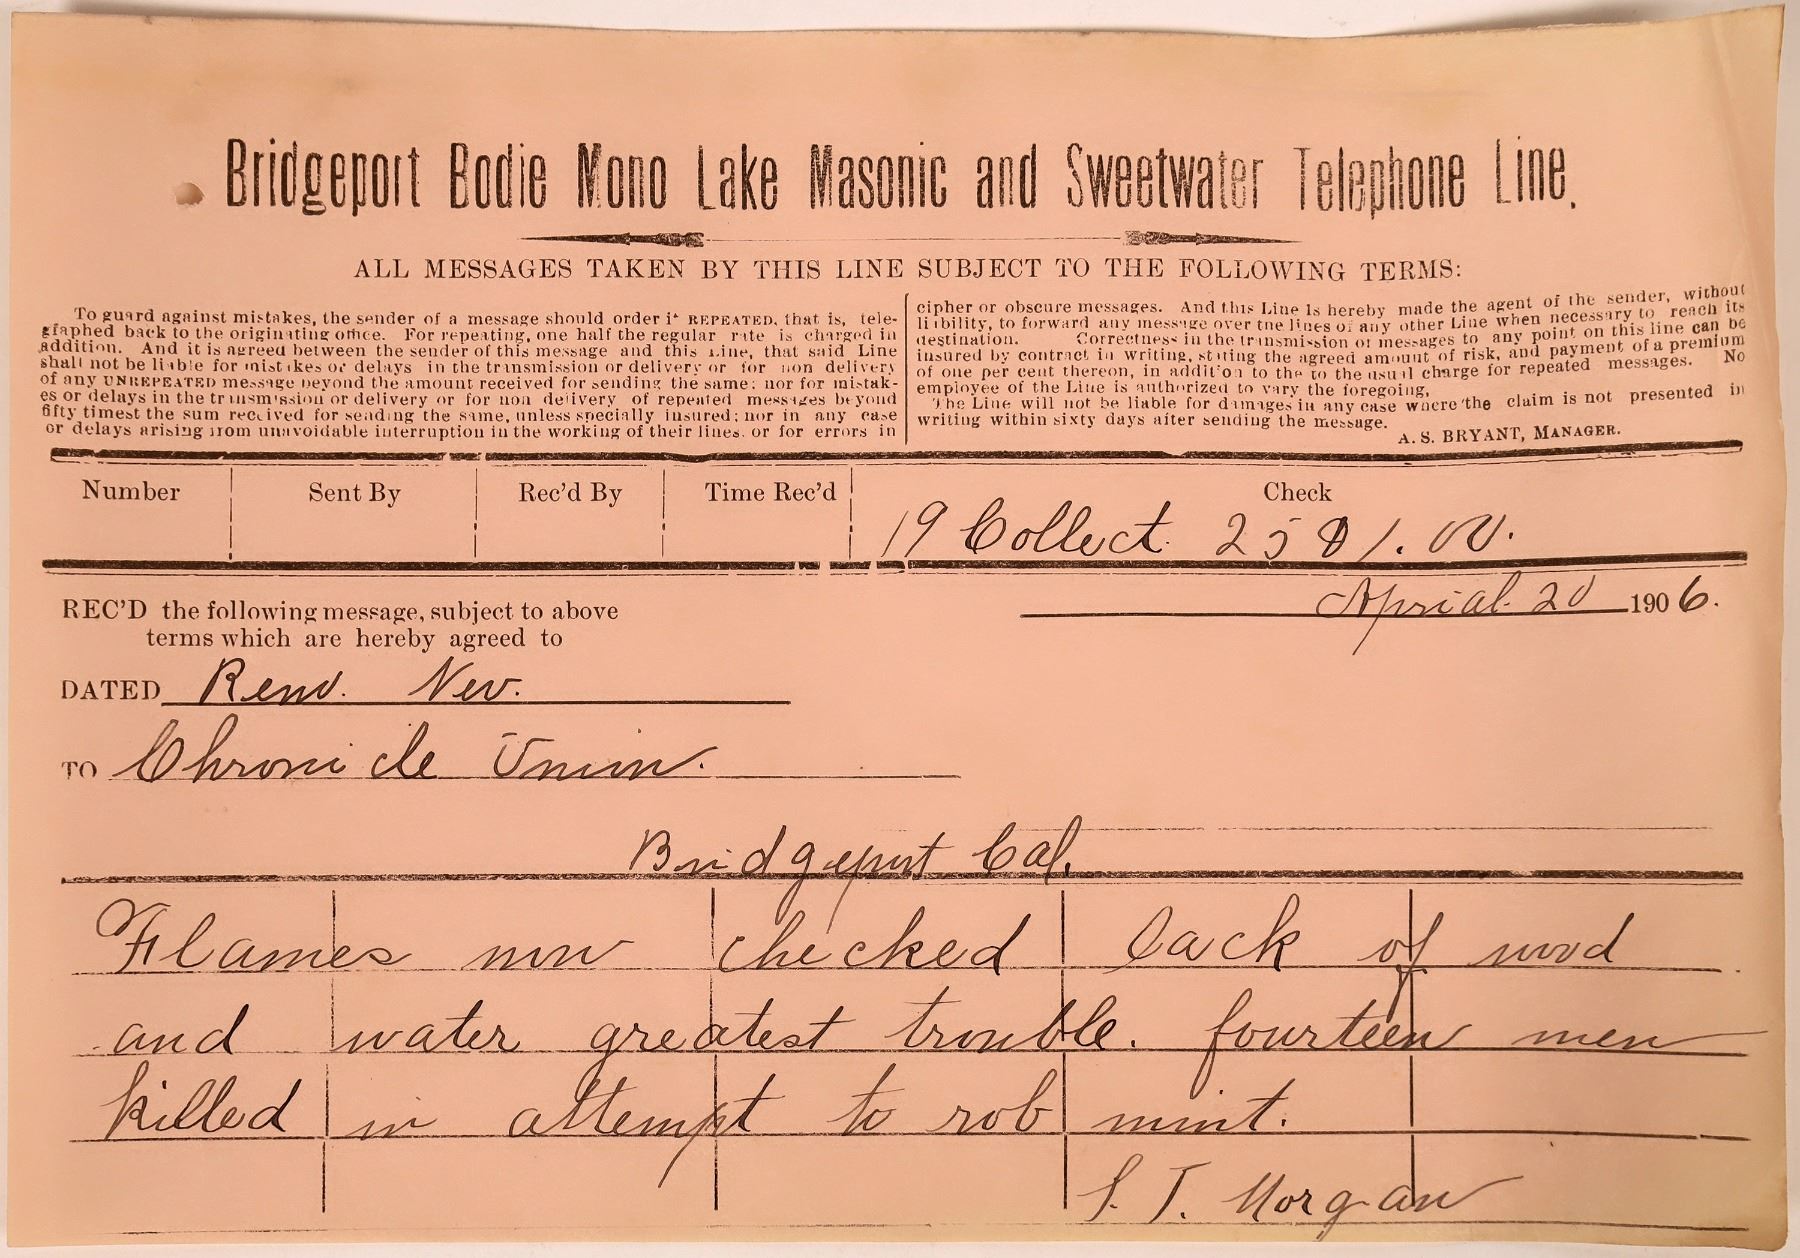 Bridgeport Bodie Mono Lake Masonic and Sweetwater Telephone Line.
ALL MESSAGES TAKEN BY THIS LINE SUBJECT TO THE FOLLOWING TERMS:
To guard against mistakes, the sender of a message should order it REPEATED, that is, tele-
graphed back to the originating office. For repeating, one half the regular rate is charged in
addition. And it is agreed between the sender of this message and this Line, that said Line
shall not be liable for mistakes or delays in the transmission or delivery or for non delivery
of any UNREPEATED message beyond the amount received for sending the same; nor for mistak-
es or delays in the transmission or delivery or for non delivery of repeated messages beyond
fifty timest the sum received for sending the same, unless specially insured; nor in any case
or delays arising from unavoidable interruption in the working of their lines. or for errors in
cipher or obscure messages. And this Line is hereby made the agent of the sender, without
liibility, to forward any message over the lines of any other Line when necessary to reach its
destination. Correctness in the transmission of messages to any point on this line can be
insured by contract in writing, stating the agreed amount of risk, and payment of a premium
of one per cent thereon, in addition to the to the usual charge for repeated messages. No
employee of the Line is authorized to vary the foregoing,
The Line will not be liable for damages in any case where the claim is not presented in
writing within sixty days after sending the message.
A. S. BRYANT, MANAGER.
Number Sent By Rec'd By Time Rec'd Check
19 Collect. 25 1.00.
Aprial 20 1906.
REC'D the following message, subject to above
terms which are hereby agreed to
DATED Reno. Nev.
TO Chronicle Union.
Bridgeport Cal.
Flames now checked lack of food
and water greatest trouble. fourteen men
killed in attempt to rob mint.
S. T. Morgan